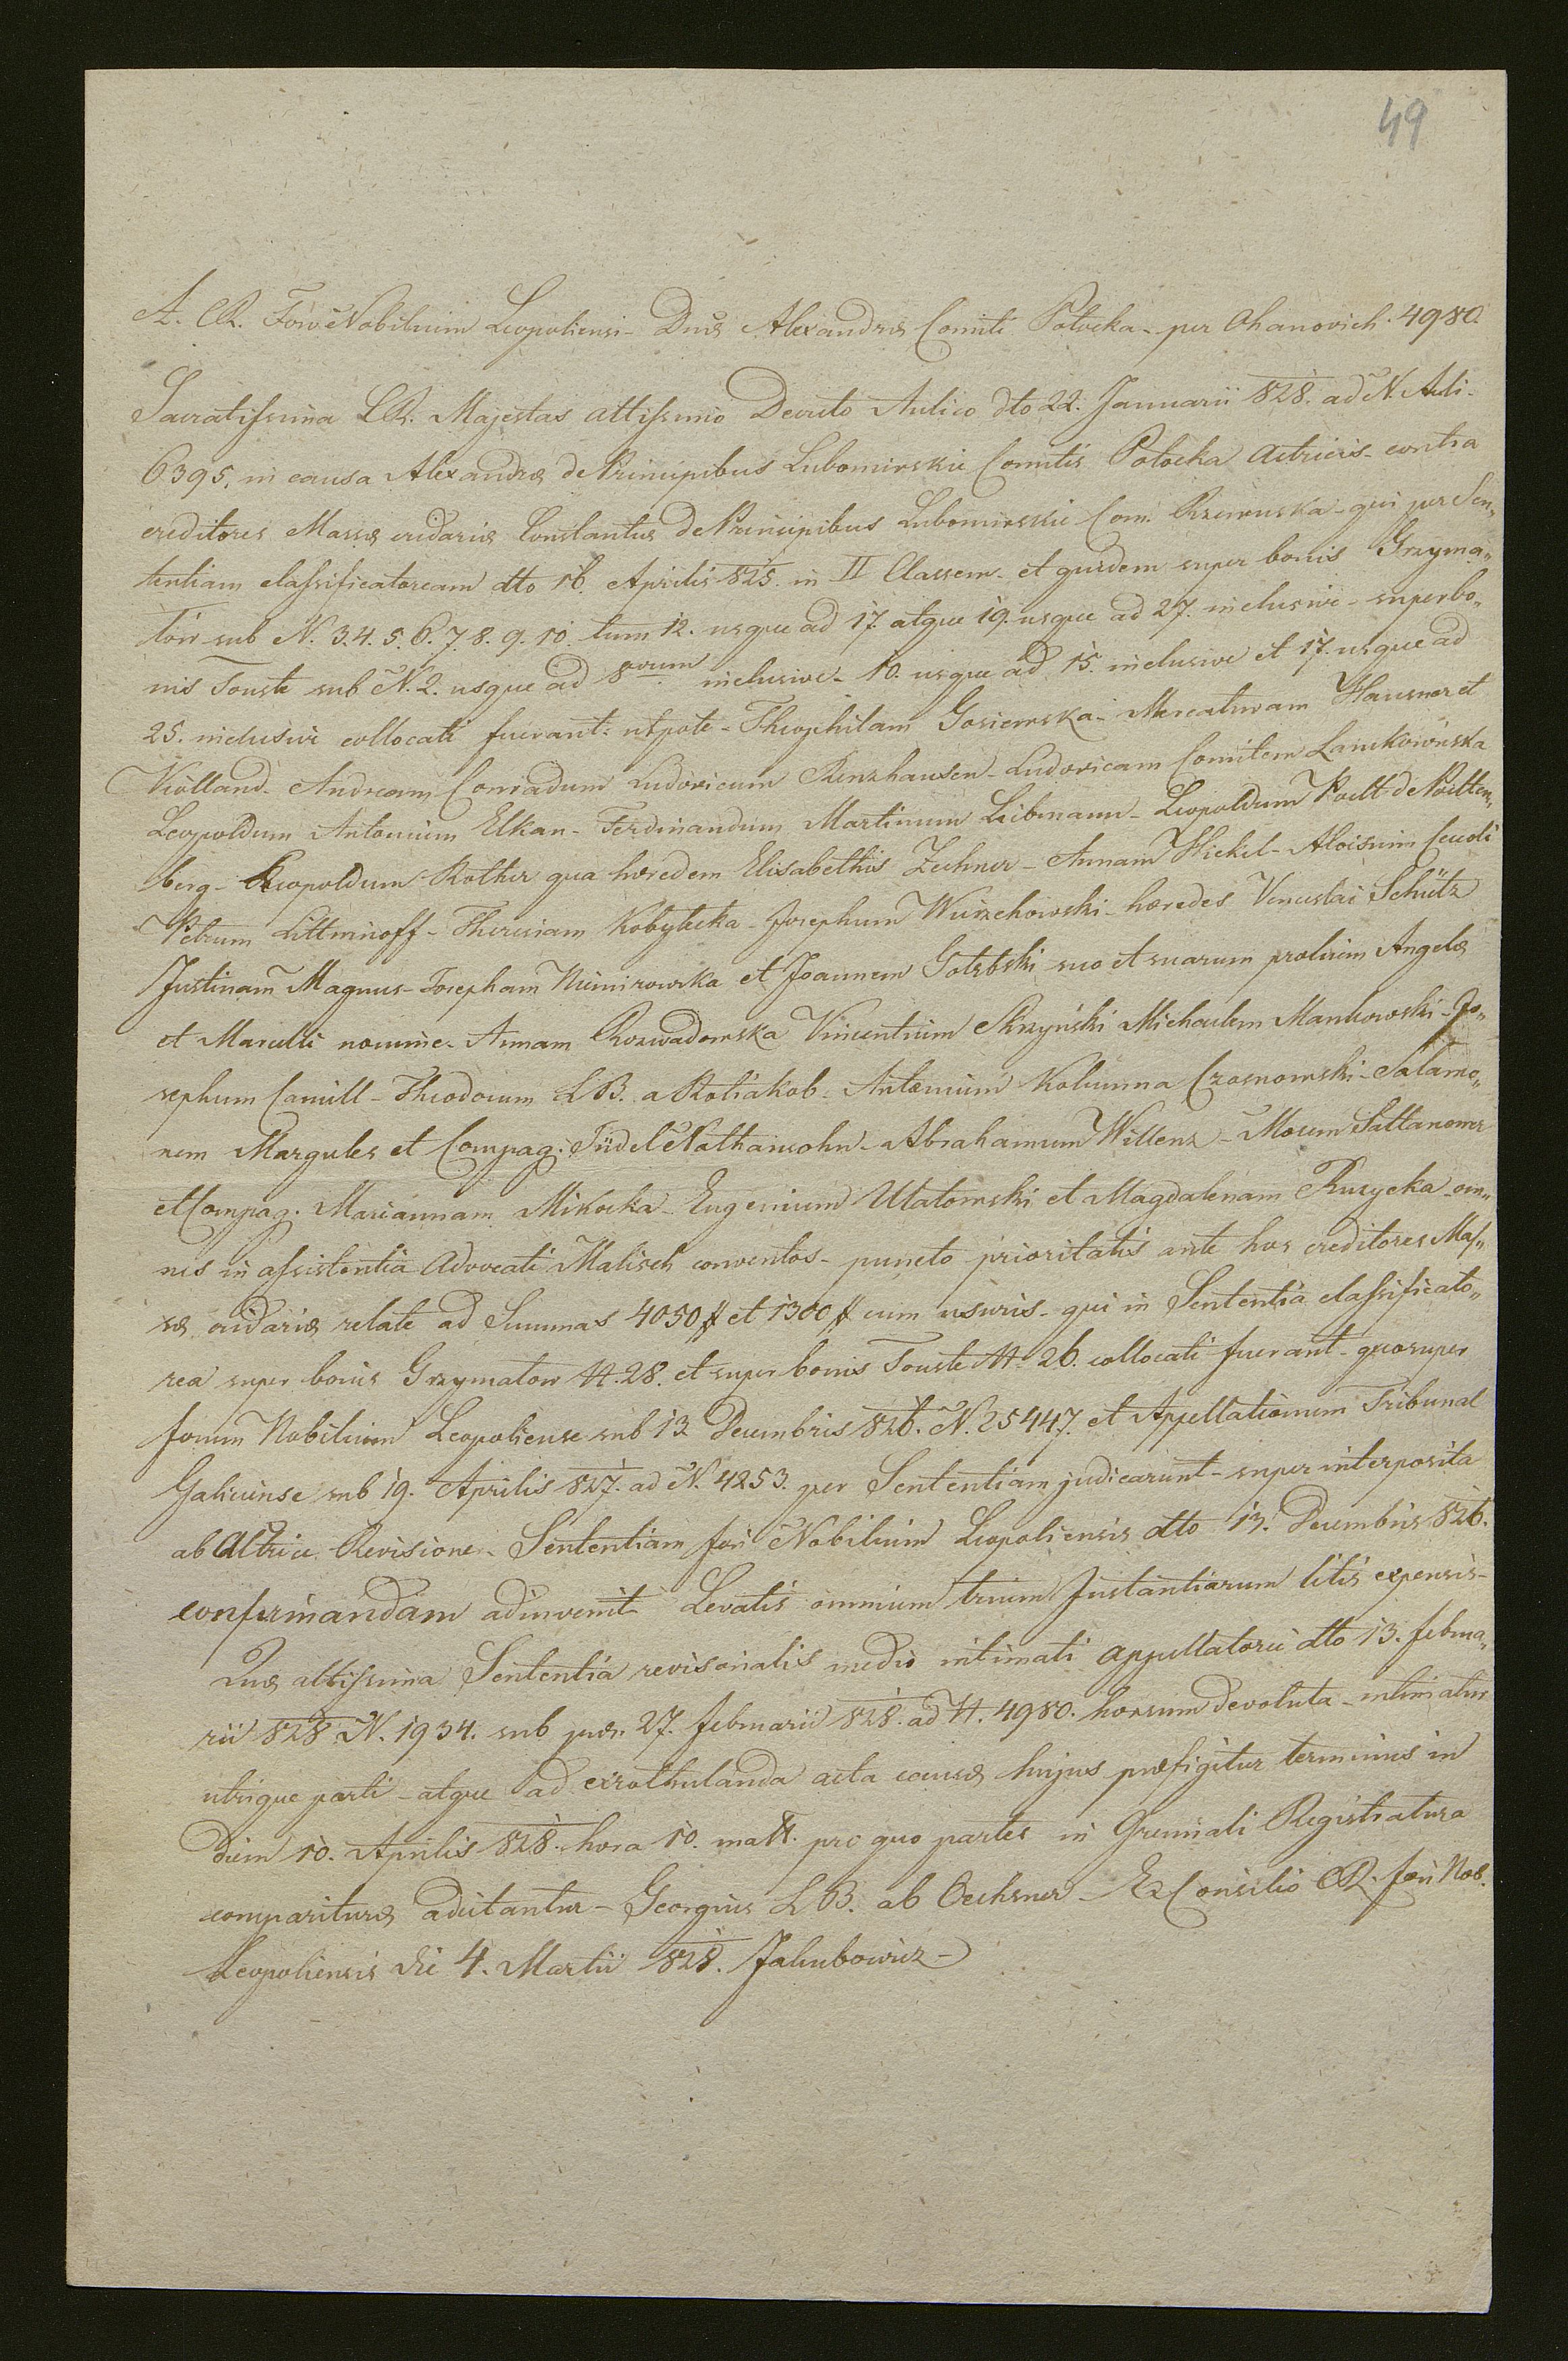 49
A. C.R. Foro Nobilium Leopoliensi - Dnæ Alexandræ Comiti Potocka - per Ohanovich. 4980.
Sacratissima C.R. Majestas altissimo Decreto Aulico dto 22. Januarii 828. ad N. Auli.
6395. in causa Alexandræ de Principibus Lubomirskie Comitis Potocka Actricis - contra
creditores Massæ cridariæ Constantiæ de Principibus Lubomirskie Com. Rzewuska - qui per Sen„
tentiam classificatoream dto 16. Aprilis 825. in II Classem - et quidem super bonis Grzyma„
łow sub N. 3. 4. 5. 6. 7. 8. 9. 10. tum 12. usque ad 17. atque 19. usque ad 27. inclusive - super bo„
nis Touste sub N. 2. usque ad 8vum inclusive - 10. usque ad 15. inclusive et 17. usque ad
25. inclusive collocati fuerant: utpote - Theophilam Gosiewska - Mercaturam Hausner et
Violland - Andream Conradum Ludovicum Rinzhausen - Ludovicam Comitem Lanckorońska
Leopoldum Antonium Elkan - Ferdinandum Martinum Liebmann - Leopoldum Poelt de Poelten„
berg - Leopoldum Rother qua hæredem Elisabethis Zechner - Annam Hickel - Aloisium Ceuoli
Petrum Littminoff - Theresiam Kobylecka - Josephum Wierzchowski - hæredes Venceslai Schütz
Justinam Magnus - Josepham Niemirowska et Joannem Gołębski suo et suarum prolium Angelæ
et Marcelli nomine - Annam Rozwadowska Vincentium Skrzyński Michaelem Mankowski - Jo„
sephum Camill - Theodorum L.B. a Rotiakob - Antonium Kolumna Czosnowski - Salamo„
nem Margules et Compag: Jüdel Nathansohn - Abrahamum Willenz - Mosem Sattanower
et Compag. Mariannam Mikocka - Eugenium Ulatowski et Magdalenam Ruzycka - om„
nes in assistentia Advocati Malisch conventos - puncto prioritatis ante hos creditores Mas„
sæ cridariæ relate ad Summas 4050 # et 1300 # cum usuris - qui in Sententia classificato„
rea super bonis Grzymalow N. 28. et super bonis Touste N. 26. collocati fuerant - quo super
forum Nobilium Leopoliense sub 13 Decembris 826. N. 25447. et Appellationum Tribunal
Galiciense sub 19. Aprilis 827. ad N. 4253. per Sententiam judicarunt - super interposita
ab Actrice Revisione - Sententiam fori Nobilium Leopoliensis dto 13. Decembris 826.
confirmandam adinvenit Levatis omnium trium Instantiarum litis expensis -
Quæ altissima Sententia revisorialis medio intimati appellatorii dto 13. Februa„
rii 828 N. 1934. sub præs. 27. Februarii 828. ad N. 4980. horsum devoluta - intimatur
utrique parti - atque ad exrothulanda acta causæ hujus præfigitur terminus in
diem 10. Aprilis 828. hora 10. matt. pro quo partes in Gremiali Registratura
compariturae adcitantur - Georgius L.B. ab Oechsner - Ex Consilio C.R. Fori Nob.
Leopoliensis die 4. Martii 828. Jakubowicz -